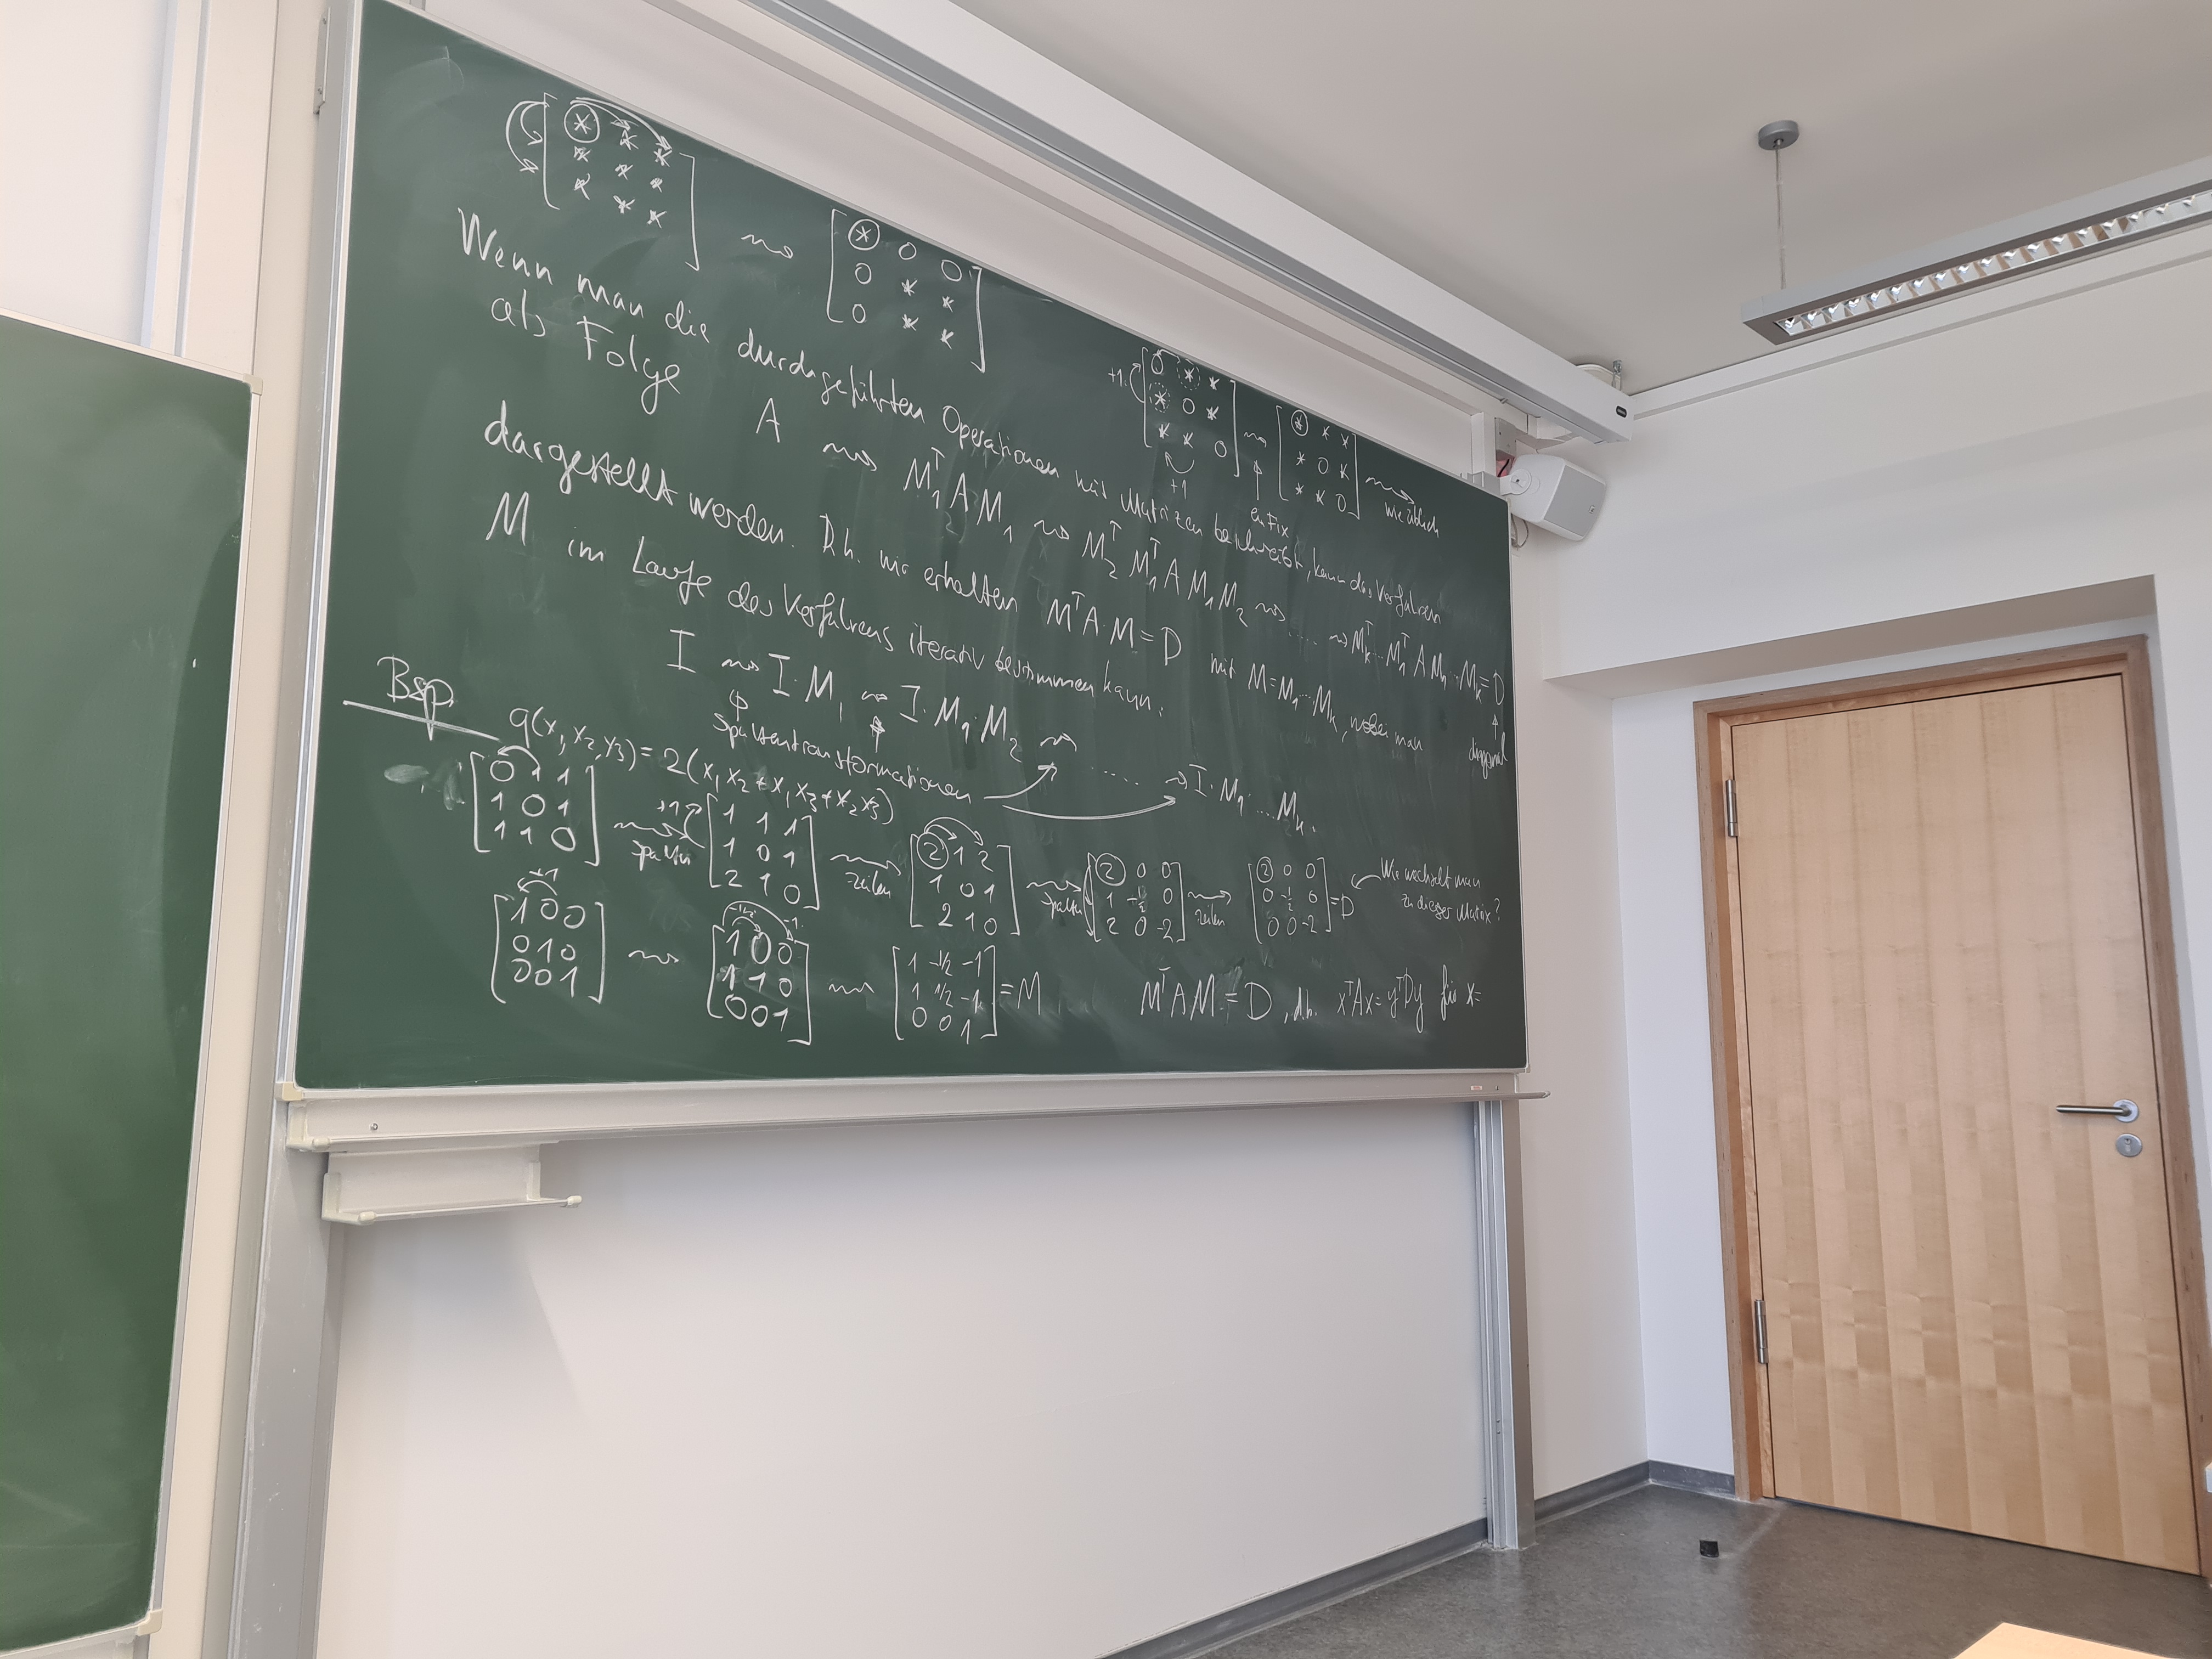 [⊛ * *; * * *; * * *] ⇝ [⊛ 0 0; 0 * *; 0 * *]
+1 [0 * *; * 0 *; * * 0] +1 ⇝ [⊛ * *; * 0 *; * * 0] ⇝ wie üblich
Wenn man die durchgeführten Operationen mit Matrizen beschreibt, kann das Verfahren
als Folge A ⇝ M₁ᵀ A M₁ ⇝ M₂ᵀ M₁ᵀ A M₁ M₂ ⇝ ..... ⇝ Mₖᵀ...M₁ᵀ A M₁...Mₖ = D
↑ diagonal
dargestellt werden. D.h. wir erhalten MᵀA·M = D mit M = M₁...Mₖ, wobei man
M im Laufe des Verfahrens iterativ bestimmen kann:
I ⇝ I·M₁ ⇝ I·M₁·M₂ ⇝ ..... ⇝ I·M₁....Mₖ.
Spaltentransformationen
Bsp. q(x₁,x₂,x₃) = 2(x₁x₂+x₁x₃+x₂x₃)
[0 1 1; 1 0 1; 1 1 0] ⇝ Spalten +1 [1 1 1; 1 0 1; 2 1 0] ⇝ Zeilen [② 1 2; 1 0 1; 2 1 0] ⇝ Spalten [② 0 0; 1 -½ 0; 2 0 -2] ⇝ Zeilen [② 0 0; 0 -½ 0; 0 0 -2] = D
Wie wechselt man
zu dieser Matrix?
+1 [1 0 0; 0 1 0; 0 0 1] ⇝ -1/2 -1. [1 0 0; 1 1 0; 0 0 1] ⇝ [1 -1/2 -1; 1 1/2 -1; 0 0 1] = M
MᵀAM = D, d.h. xᵀAx = yᵀDy für x=